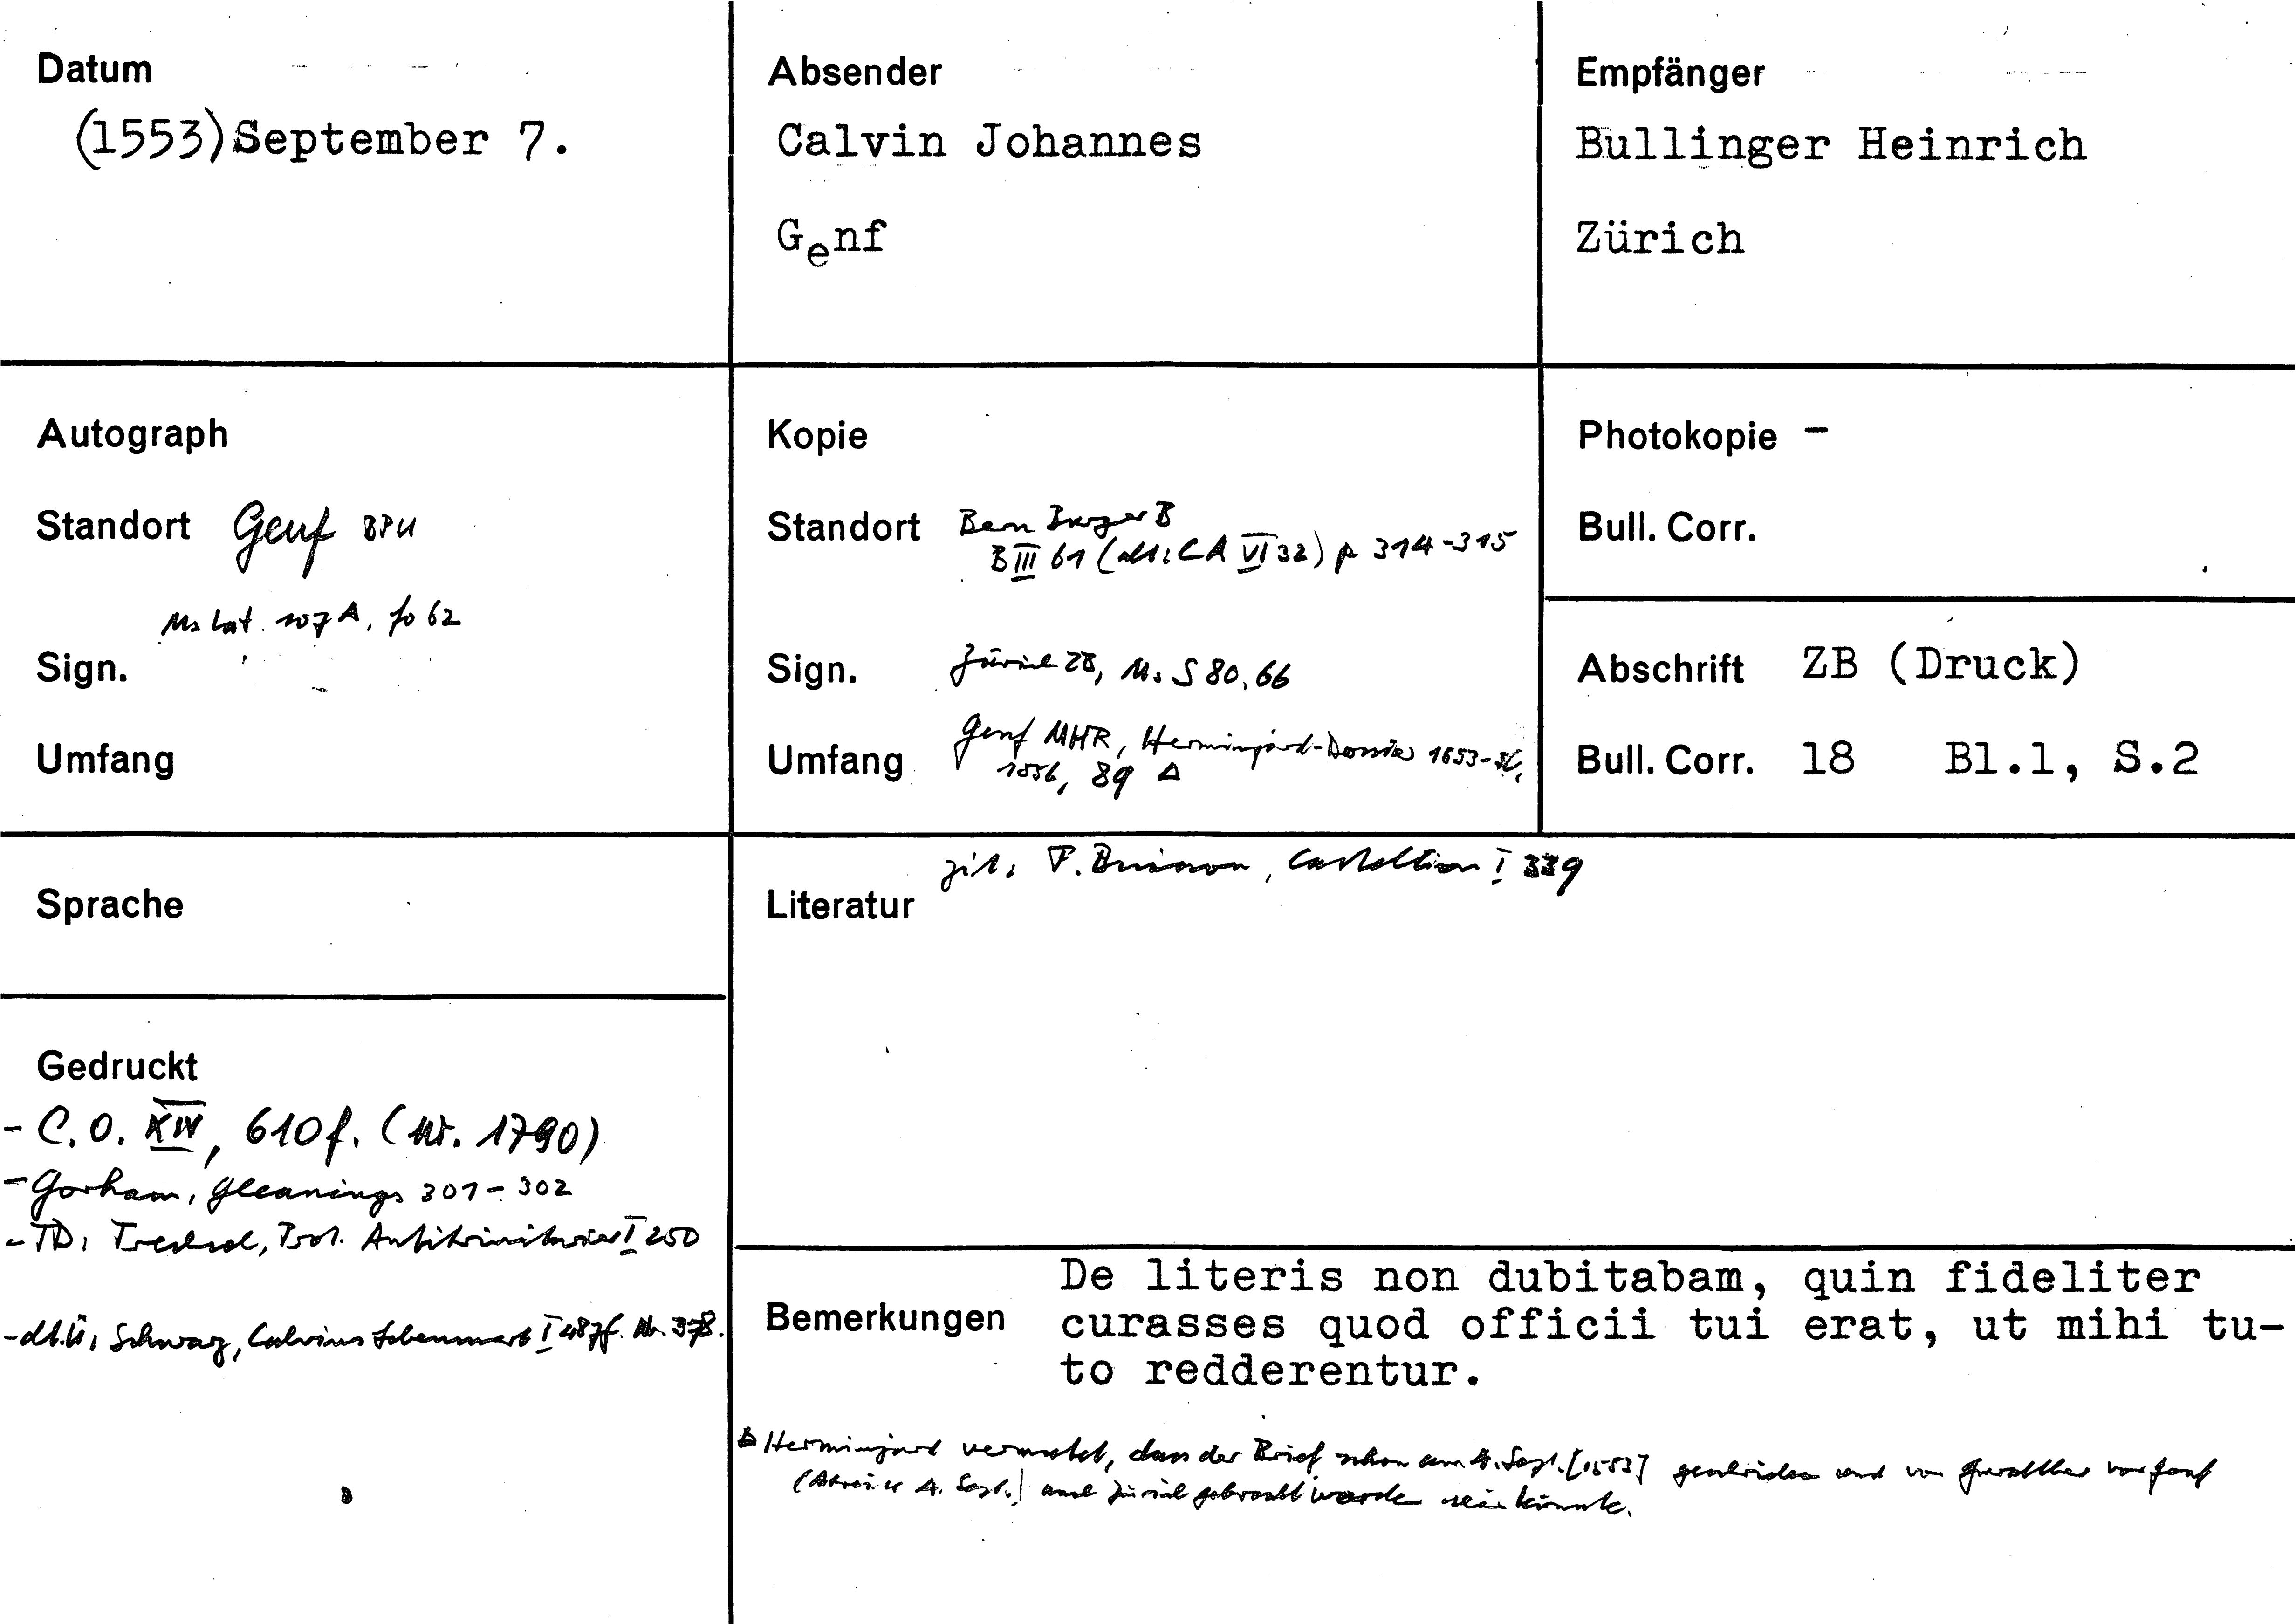 Datum
(1553) September 7.
Absender
Calvin Johannes
Genf
Empfänger
Bullinger Heinrich
Zürich
Autograph
Standort Genf BPU
Ms lat. 107 A, fo 62
Sign.
Umfang
Kopie
Standort Bern BurgerB
B III 61 (alt: CA VI 32) p 314-315
Sign. Zürich ZB, Ms S 80, 66
Umfang Genf MHR, Herminjard-Dossier 1553-
1556, 89 Δ
Photokopie -
Bull. Corr.
Abschrift ZB (Druck)
Bull. Corr. 18 Bl.1, S.2
Sprache
Gedruckt
- C.O. XIV, 610f. (Nr. 1790)
- Gorham, Gleanings 301-302
- TD: Trechsel, Prot. Antitrinitarier I 250
- dt.Ü: Schwarz, Calvins Lebenswerk I 487f. Nr. 378.
Literatur zit: F. Buisson, Castellion I 339
Bemerkungen
De literis non dubitabam, quin fideliter
curasses quod officii tui erat, ut mihi tu-
to redderentur.
Δ Herminjard vermutet, dass der Brief schon am 4. Sept. [1553] geschrieben und von Gwalther von Genf
(Abreise 4. Sept.) nach Zürich gebracht worden sein könnte.